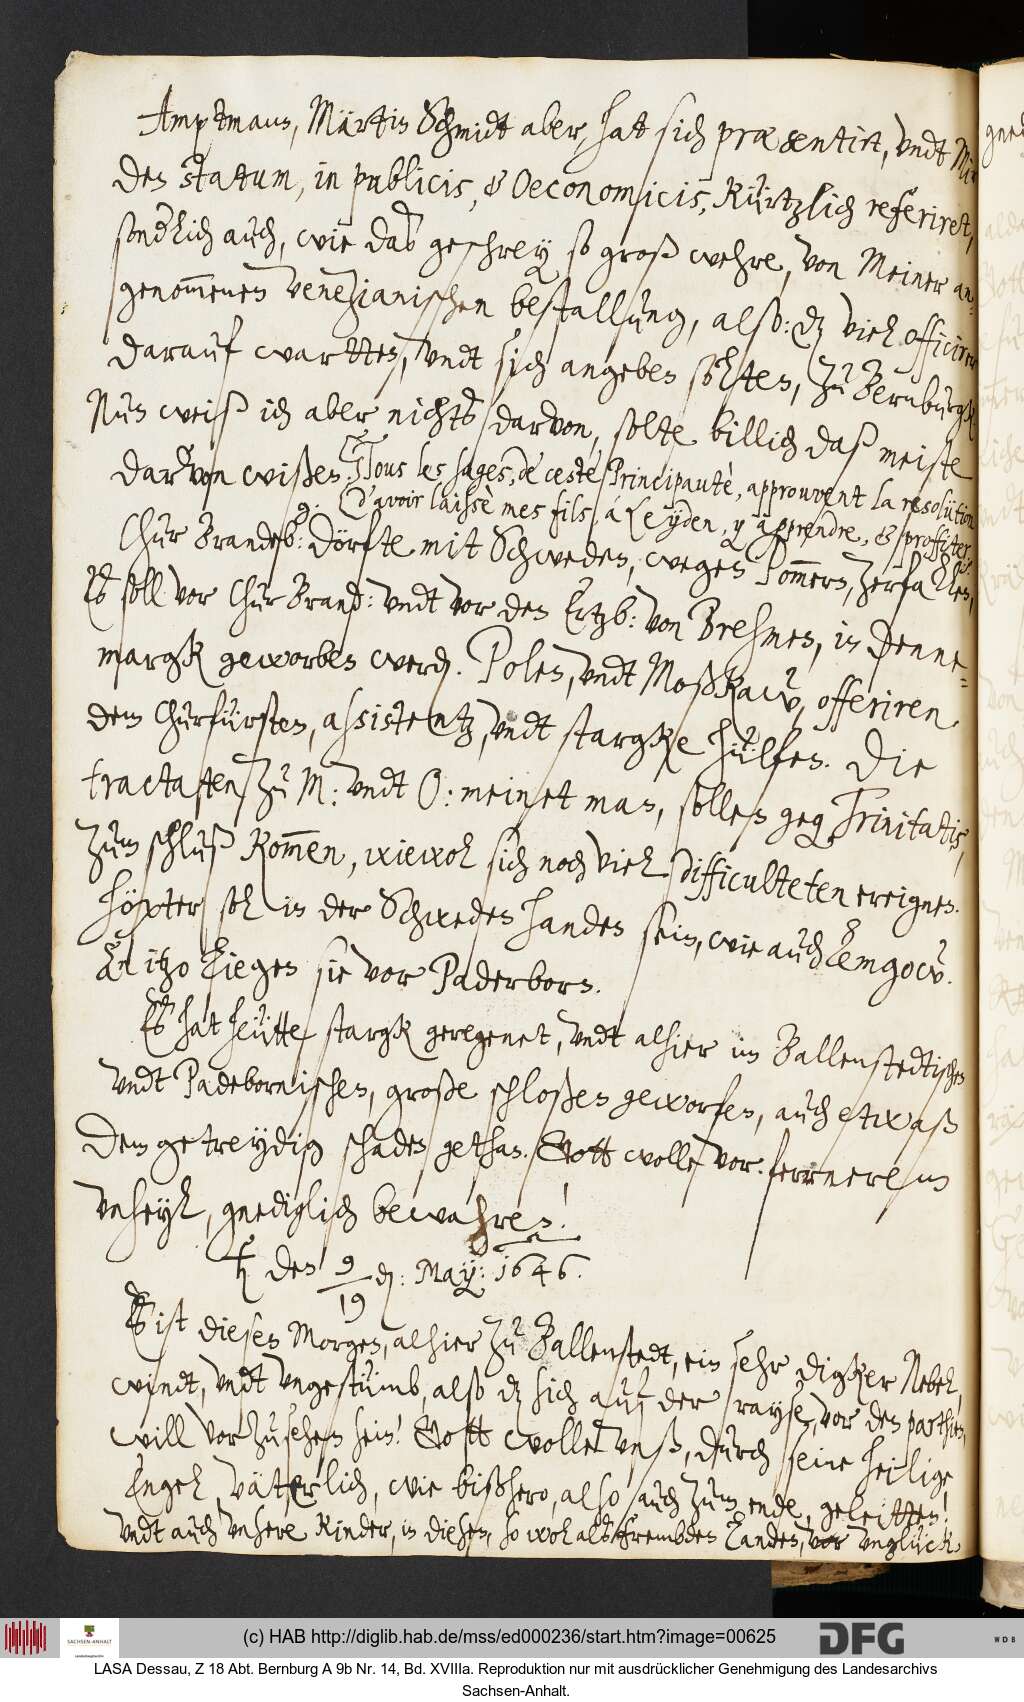 Amptmann, Märtin Schmidt aber, hat sich præsentirt, undt Mir
den statum, in publicis, & Oeconomicis, kürtzlich referiret,
sonderlich auch, wie daß geschrey so groß wehre, von Meiner an-
genom̅enen Venezianischen bestallung, also: dz viel officirer
darauf wartten, undt sich angeben solten, zu Bernburgk
Nun weiß ich aber nichts darvon, solte billich daß meiste
darvon wißen. Tous les sages, de ceste Principautè, approuvent la resolution
d'avoir laissè mes fils, á Leyden, y apprendre, & proffiter.
Chur Brandeb: Dörfte mit Schweden, wegen Pom̅ern, zerfallen,
Es soll vor Chur Brand: undt vor den Ertzb: von Brehmen, in Denne-
margk geworben werden. Polen, undt Moßkaw, offeriren
dem Churfürsten, assistentz, undt stargke hülfen. Die
tractaten zu M: undt O: meinet man, sollen gegen Trinitatis,
zum schluß kom̅en, wiewol sich noch viel difficulteten ereignen.
Höxter sol in der Schweden handen sein, wie auch Lemgow.
An itzo liegen sie vor Paderborn.
Es hat heütte stargk geregenet, undt alhier im Ballenstedtischen
undt Padebornischen, große schloßen geworfen, auch etwaß
dem getreydig schaden gethan. Gott wolle vor fernerem
unheyl, gnediglich bewahren!
♄ den 9/19 den: May: 1646.
Es ist diesen Morgen, alhier zu Ballenstedt, ein sehr digker Nebel,
windt, undt ungestümb, also dz sich auf der rayse, vor den parthien,
will vorzusehen sein! Gott wolle unß, durch seine heilige
Engel väterlich, wie bißhero, also auch zum ende, geleitten!
undt auch unsere Kinder, in diesen, so wol als frembden Landen, vor unglück
(c) HAB http://diglib.hab.de/mss/ed000236/start.htm?image=00625
DFG
WDB
SACHSEN-ANHALT
LASA Dessau, Z 18 Abt. Bernburg A 9b Nr. 14, Bd. XVIIIa. Reproduktion nur mit ausdrücklicher Genehmigung des Landesarchivs
Sachsen-Anhalt.